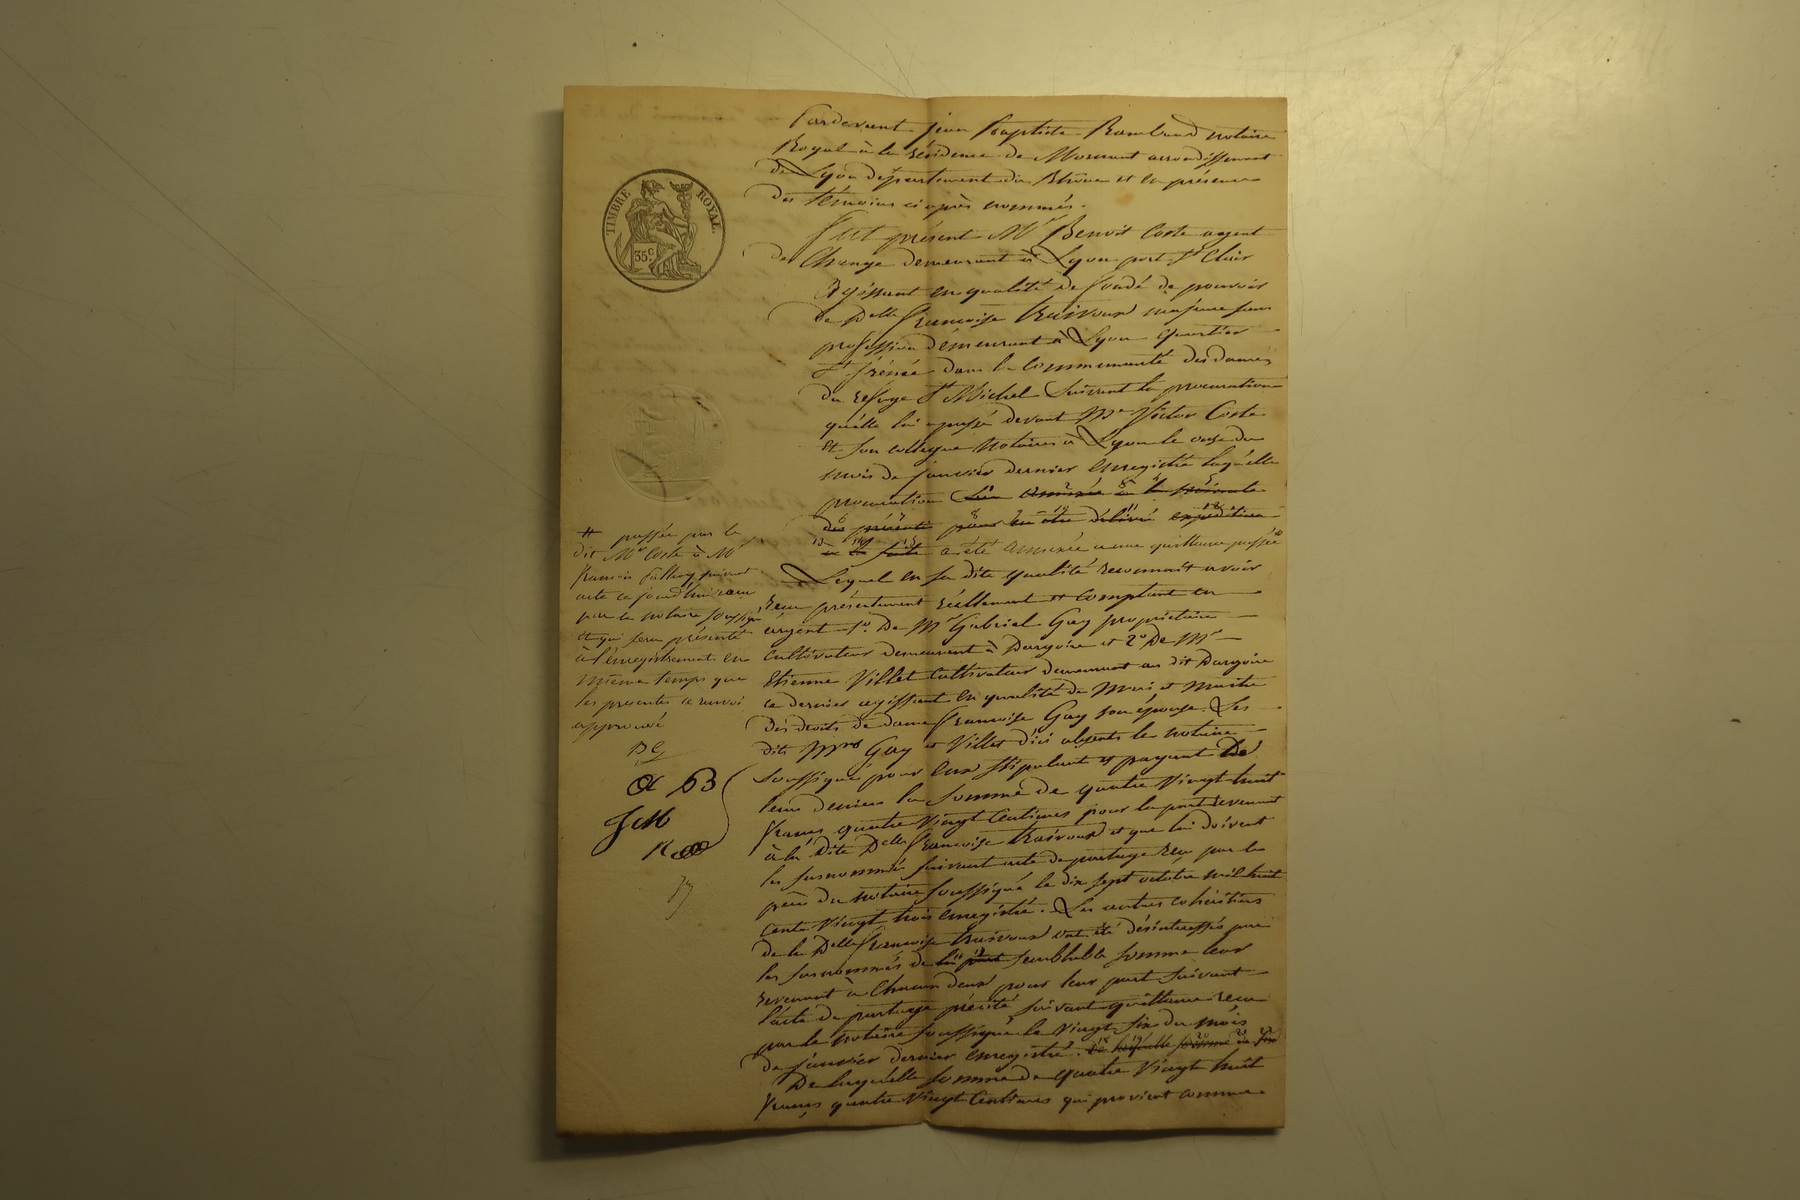 Pardevant Jean Baptiste Rambaud notaire
Royal à la résidence de Mornant arrondissement
de Lyon département du Rhône et en présence
des témoins ci après nommés.
TIMBRE ROYAL
35 C
Fut présent Mr Benoit Coste agent
de Change demeurant à Lyon port St Clair
Agissant en qualité de fondé de pouvoir
de Delle Françoise majeure sans
profession demeurant à Lyon quartier
St Irénée dans la Communauté des dames
du refuge St Michel suivant la procuration
qu'elle lui a passé devant Me Victor Coste
et son collegue Notaires à Lyon le onze du
mois de janvier dernier enregistré laquelle
procuration
des présentes pour en être délivré expédition
a été annexée a une quittance passée
Lequel en sa dite qualité reconnait avoir
reçu présentement réellement et comptant en
argent 1o. De Mr Gabriel Gay propriétaire
cultivateur demeurant à Dargoire et 2o De Mr
Etienne Villet cultivateur demeurant au dit Dargoire
ce dernier agissant en qualité de Mari et Maitre
des droits de dame Françoise Gay son épouse. Les
dits Mrs Gay et Villet d'ici absents le notaire
soussigné pour eux stipulant et payant De
leurs deniers la somme de quatre Vingt huit
francs quatre Vingt Centimes pour la part revenant
à la dite Delle Françoise et que lui doivent
les susnommés suivant acte de partage reçu par le
père du notaire soussigné le dix sept octobre mil huit
cent Vingt trois enregistré. Les autres cohéritiers
de la Delle Françoise ont été désintéressés par
les susnommés de la part semblable somme leur
revenant à Chacun deux pour leur part suivant
l'acte de partage précité suivant quittance reçue
par le notaire soussigné le Vingt six du mois
de Janvier dernier enregistré. De laquelle somme de
De laquelle somme de quatre Vingt huit
francs quatre Vingt Centimes qui provient comme
# passée par le
dit Mr Coste à Mr
François suivant
acte ce jourd'hui reçu
par le notaire soussigné
et qui sera présenté
à l'enregistrement en
même temps que
les presentes ce renvoi
approuvé